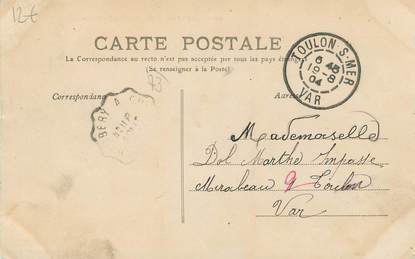 12€
CARTE POSTALE
La Correspondance au recto n'est pas acceptée par tous les pays étrangers
(Se renseigner à la Poste)
TOULON-S-MER
6 45
19-8
04
VAR
Correspondance
Adresse
Mademoiselle
Dol Marthe Impasse
Mirabeau 9 Toulon
Var